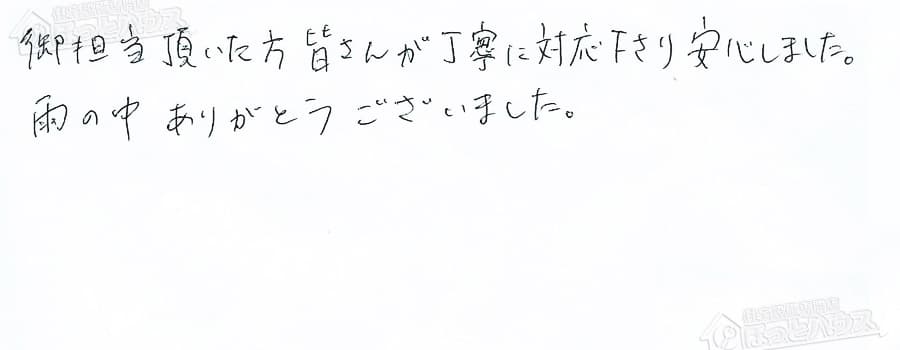 御担当頂いた方皆さんが丁寧に対応下さり安心しました。
雨の中ありがとうございました。
ほっとハウス